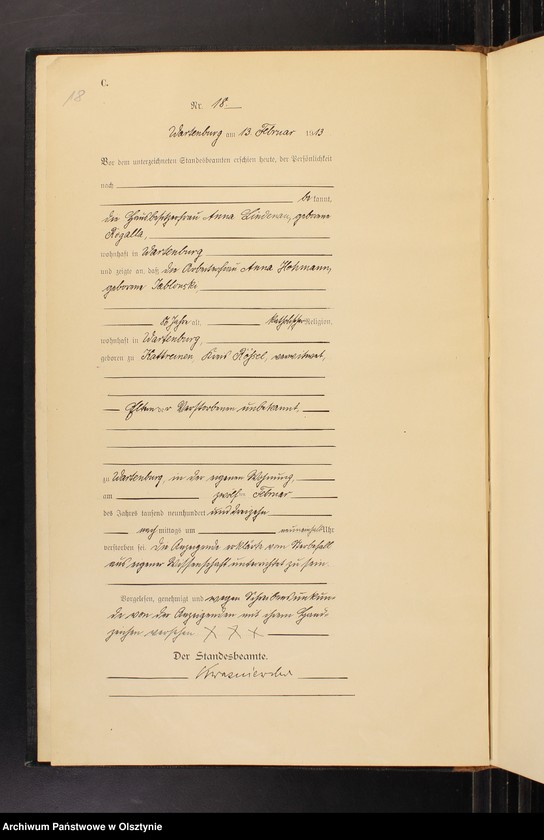 C.
18
Nr. 18.
Wartenburg am 13. Februar 1913
Vor dem unterzeichneten Standesbeamten erschien heute, der Persönlichkeit
nach
be kannt,
die Hausbesitzerfrau Anna Lindenau, geborene
Rogalla,
wohnhaft in Wartenburg
und zeigte an, daß die Arbeiterfrau Anna Hohmann,
geborene Jablonski,
Jahre alt, katholischer Religion,
wohnhaft in Wartenburg,
geboren zu Kattreinen Kreis Rößel, verwitwet,
Eltern der Verstorbenen unbekannt,
zu Wartenburg, in der eigenen Wohnung
am zwölften Februar
des Jahres tausend neunhundert und dreizehn
nach mittags um Uhr
verstorben sei. Die Anzeigende erklärte vom Sterbefall
aus eigener Wissenschaft unterrichtet zu sein.
Vorgelesen, genehmigt und wegen Schreibensunkun-
de von der Anzeigenden mit ihrem Hand-
zeichen versehen. X X X
Der Standesbeamte.
Archiwum Państwowe w Olsztynie